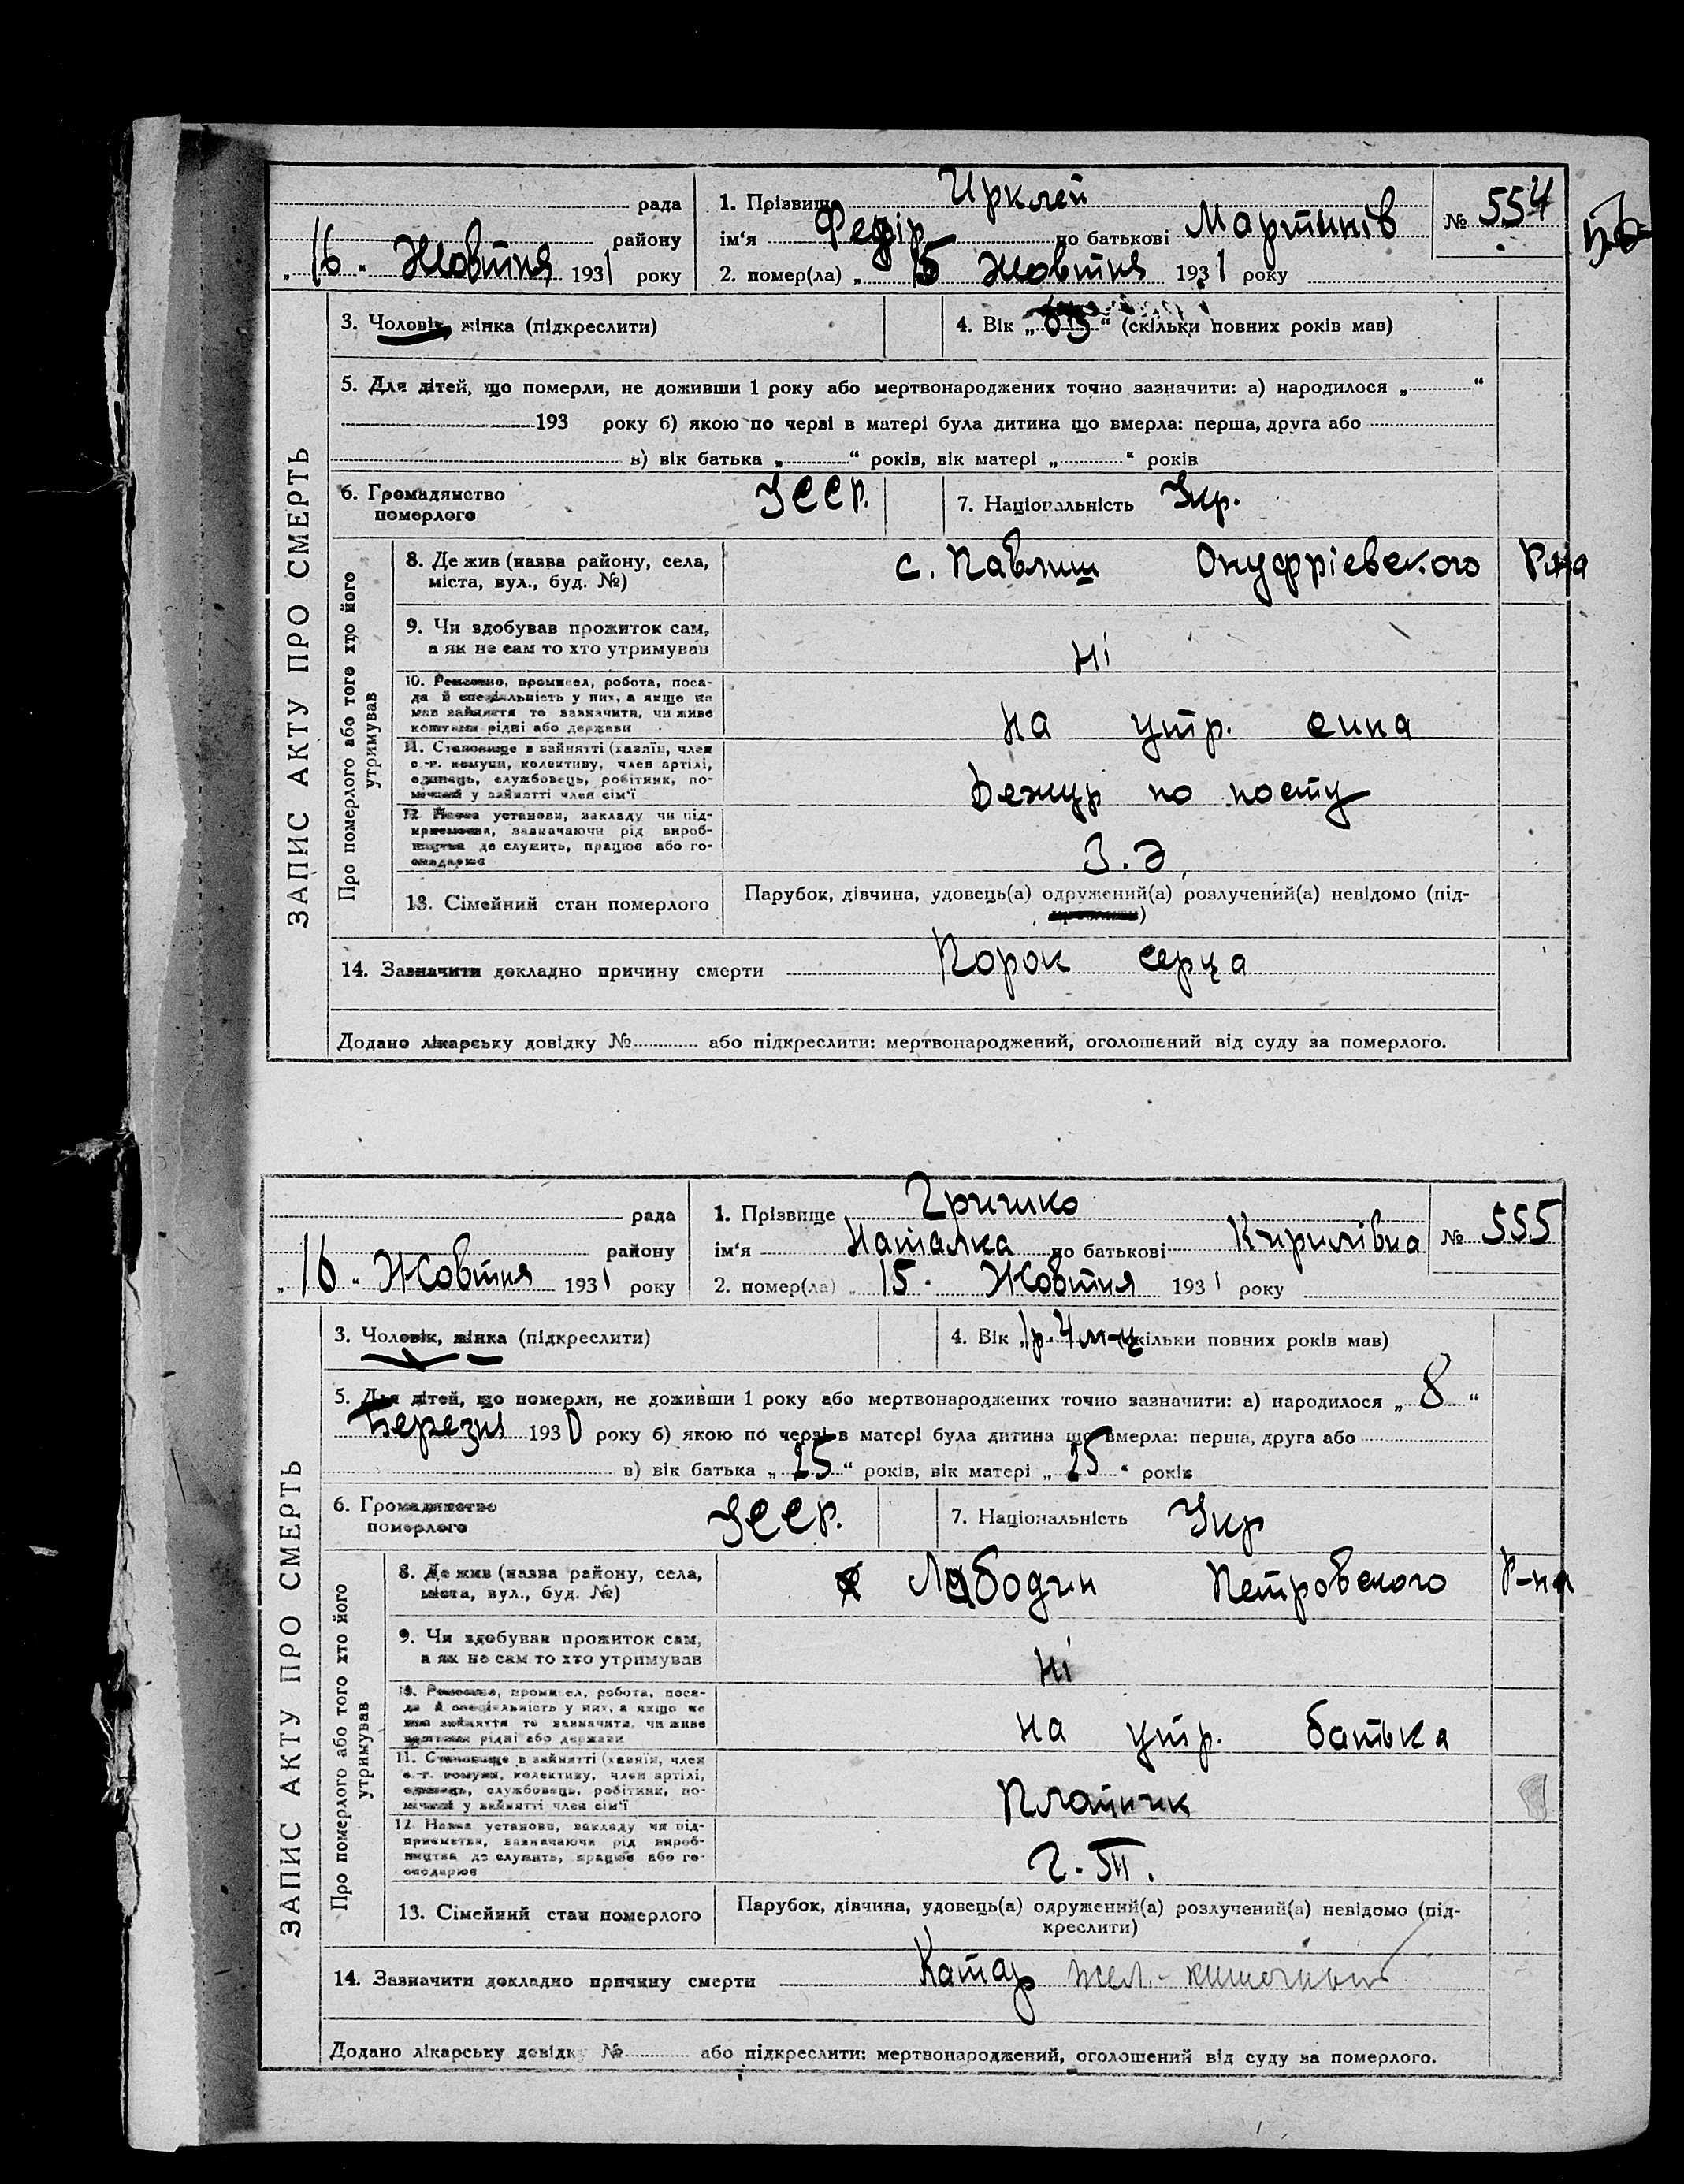 рада
1. Прізвище Ирклей
№ 554
району
ім'я Федір по батькові Мартинів
„16" Жовтня 1931 року
2. помер(ла) „15 Жовтня 1931 року
ЗАПИС АКТУ ПРО СМЕРТЬ
3. Чоловік, жінка (підкреслити)
4. Вік „ " (скільки повних років мав)
5. Для дітей, що померли, не доживши 1 року або мертвонароджених точно зазначити: а) народилося „ "
193 року б) якою по черзі в матері була дитина що вмерла: перша, друга або
в) вік батька „ " років, вік матері „ " років
6. Громадянство померлого УССР.
7. Національність Укр.
Про померлого або того хто його утримував
8. Де жив (назва району, села,
міста, вул., буд. №)
с. Павлиш Онуфріевського Р-на
9. Чи здобував прожиток сам,
а як не сам то хто утримував
Ні
10. Ремесно, промисел, робота, поса-
да й спеціальність у них, а якщо не
мав зайняття то зазначити, чи живе
коштами рідні або держави
на утр. сина
11. Становище в зайнятті (хазяїн, член
с.-г. комуни, колективу, член артілі,
одинець, службовець, робітник, по-
мічний у зайнятті член сім'ї
Дежур по посту
12. Назва установи, закладу чи під-
приємства, зазначаючи рід вироб-
ництва де служить, працює або го-
сподарює
З.д.
13. Сімейний стан померлого
Парубок, дівчина, удовець(а) одружений(а) розлучений(а) невідомо (під-
креслити)
14. Зазначити докладно причину смерти Порок серца
Додано лікарську довідку № або підкреслити: мертвонароджений, оголошений від суду за померлого.
рада
1. Прізвище Гришко
№ 555
району
ім'я Наталка по батькові Кирилівна
„16" Жовтня 1931 року
2. помер(ла) „15" Жовтня 1931 року
ЗАПИС АКТУ ПРО СМЕРТЬ
3. Чоловік, жінка (підкреслити)
4. Вік „1р. 4 м-ц (скільки повних років мав)
5. Для дітей, що померли, не доживши 1 року або мертвонароджених точно зазначити: а) народилося „8"
Березня 1930 року б) якою по черзі в матері була дитина що вмерла: перша, друга або
в) вік батька „25" років, вік матері „25" років
6. Громадянство померлого УССР.
7. Національність Укр
Про померлого або того хто його утримував
8. Де жив (назва району, села,
міста, вул., буд. №)
Лободин Петровського Р-на
9. Чи здобував прожиток сам,
а як не сам то хто утримував
Ні
10. Ремесно, промисел, робота, поса-
да й спеціальність у них, а якщо не
мав зайняття то зазначити, чи живе
коштами рідні або держави
на утр. батька
11. Становище в зайнятті (хазяїн, член
с.-г. комуни, колективу, член артілі,
одинець, службовець, робітник, по-
мічний у зайнятті член сім'ї
12. Назва установи, закладу чи під-
приємства, зазначаючи рід вироб-
ництва де служить, працює або го-
сподарює
13. Сімейний стан померлого
Парубок, дівчина, удовець(а) одружений(а) розлучений(а) невідомо (під-
креслити)
14. Зазначити докладно причину смерти Катар жел.-кишечный
Додано лікарську довідку № або підкреслити: мертвонароджений, оголошений від суду за померлого.